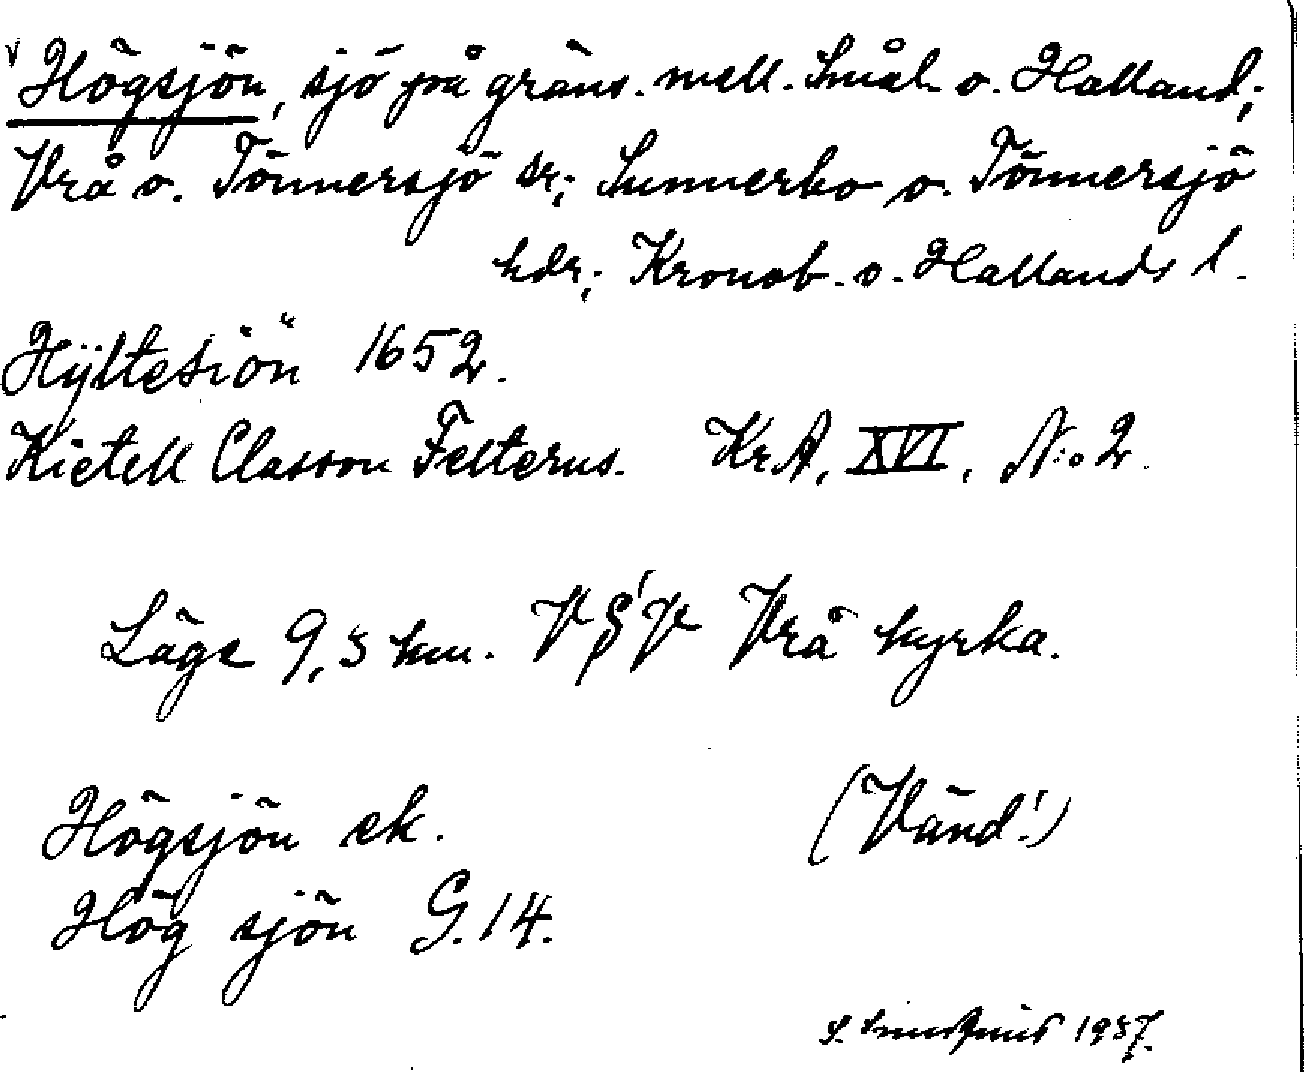 v Högsjön, sjö på gräns. mell. Smål. o. Halland;
Vrå o. Tönnersjö sr; Sunnerbo o. Tönnersjö
hdr; Kronob. o. Hallands l.
Hÿltesiön 1652.
Kietell Classon Felterus. KrA, XVI, N:o 2.
Läge 9,5 km. V Vrå kyrka.
Högsjön ek.
(Vänd!)
Hög sjön G.14.
1937.